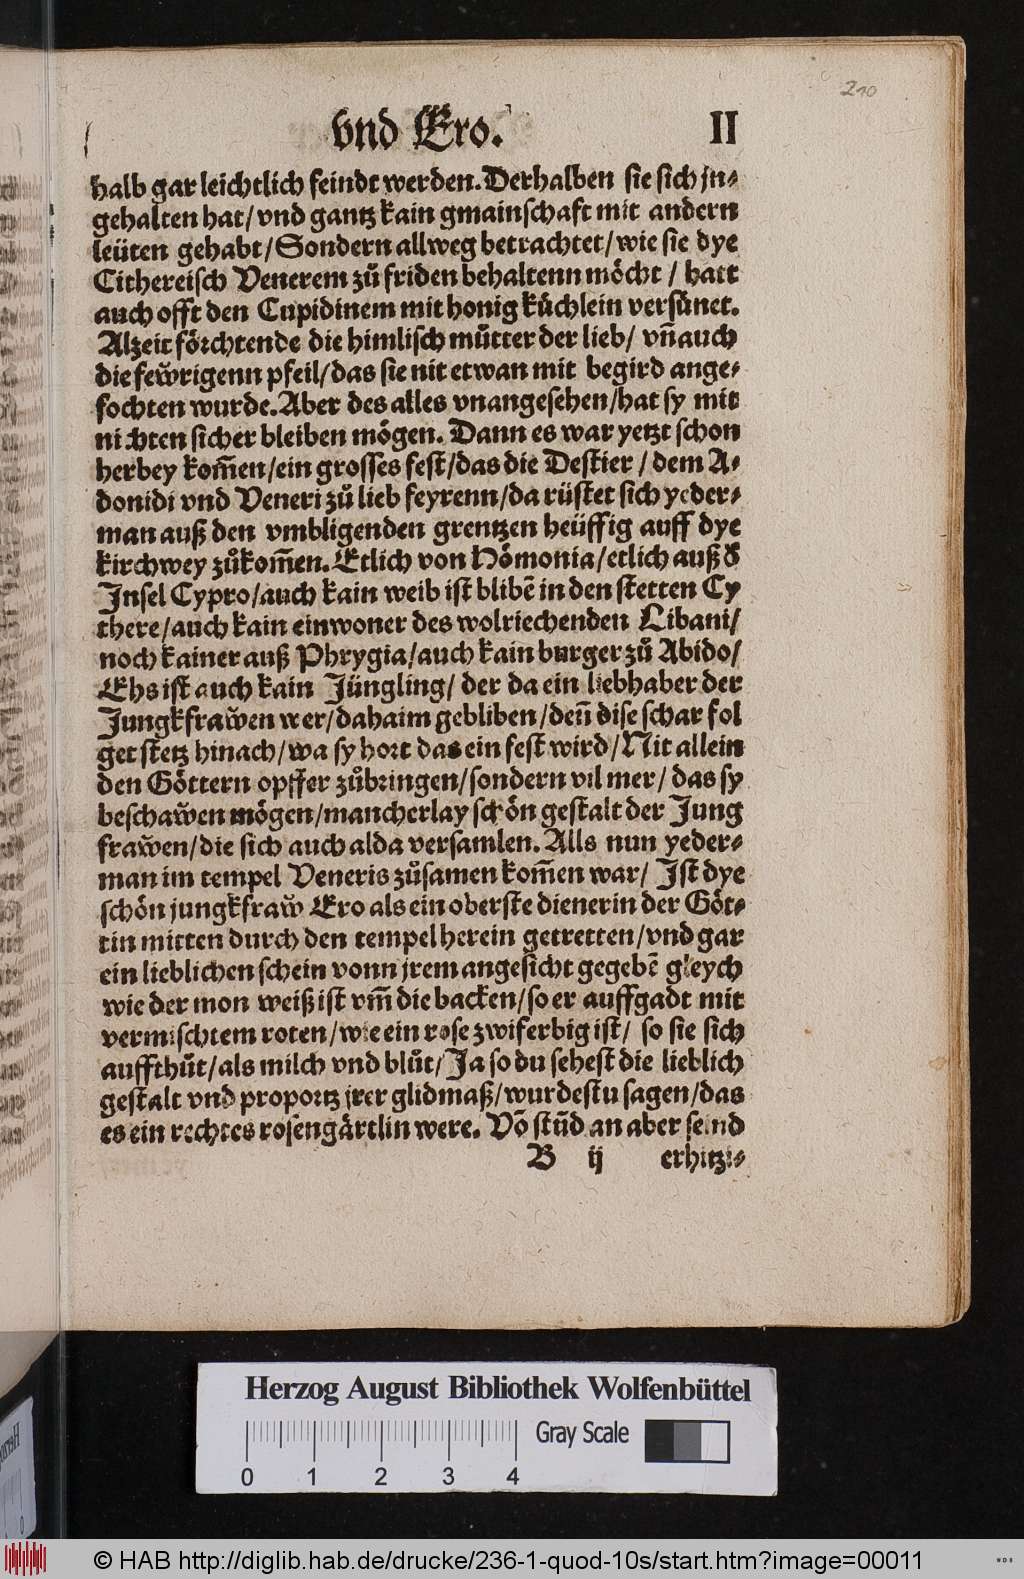 210
vnd Ero. II
halb gar leichtlich feindt werden. Derhalben sie sich jn⸗
gehalten hat/ vnd gantz kain gmainschaft mit andern
leüten gehabt/ Sondern allweg betrachtet/ wie sie dye
Cithereisch Venerem zů friden behaltenn möcht / hatt
auch offt den Cupidinem mit honig kůchlein versůnet.
Alzeit förchtende die himlisch můtter der lieb/ vñ auch
die fewrigenn pfeil/ das sie nit etwan mit begird ange⸗
fochten wurde. Aber des alles vnangesehen/ hat sy mit
nichten sicher bleiben mögen. Dann es war yetzt schon
herbey kom̃en/ ein grosses fest/ das die Destier / dem A⸗
donidi vnd Veneri zů lieb feyrenn/ da rüstet sich yeder⸗
man auß den vmbligenden grentzen heüffig auff dye
kirchwey zůkom̃en. Etlich von Hömonia/ etlich auß d̕
Insel Cypro/ auch kain weib ist blibē in den stetten Cy
there/ auch kain einwoner des wolriechenden Libani/
noch kainer auß Phrygia/ auch kain burger zů Abido/
Ehs ist auch kain Jüngling/ der da ein liebhaber der
Jungkfrawen wer/ dahaim gebliben/ deñ dise schar fol
get stetz hinach/ wa sy hort das ein fest wird/ Nit allein
den Göttern opffer zůbringen/ sondern vil mer/ das sy
beschawen mögen/ mancherlay schön gestalt der Jung
frawen/ die sich auch alda versamlen. Alls nun yeder⸗
man im tempel Veneris zůsamen kom̃en war/ Ist dye
schön jungkfraw Ero als ein oberste dienerin der Göt⸗
tin mitten durch den tempel herein getretten/ vnd gar
ein lieblichen schein vonn jrem angesicht gegebē gleych
wie der mon weiß ist vm̃ die backen/ so er auffgadt mit
vermischtem roten/ wie ein rose zwiferbig ist/ so sie sich
auffthůt/ als milch vnd blůt/ Ja so du sehest die lieblich
gestalt vnd proportz jrer glidmaß/ wurdestu sagen/ das
es ein rechtes rosengärtlin were. Võ stũd an aber seind
B ij erhitzi⸗
Herzog August Bibliothek Wolfenbüttel
Gray Scale
0 1 2 3 4
© HAB http://diglib.hab.de/drucke/236-1-quod-10s/start.htm?image=00011